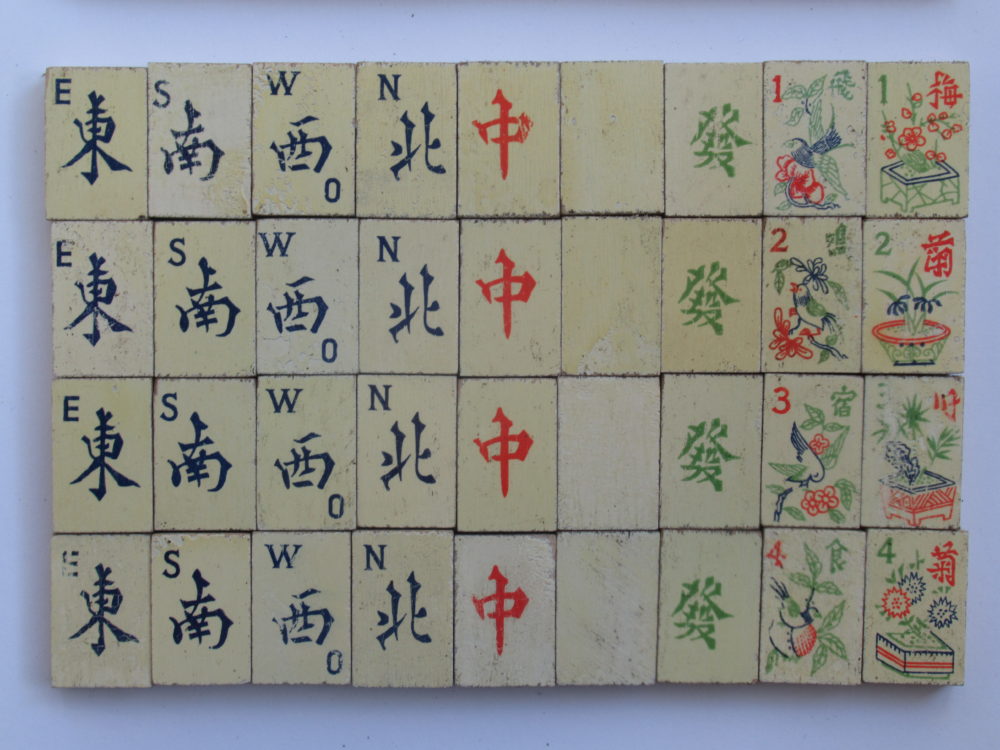 E 東 S 南 W 西 O N 北 中 發 1 飛 1 梅
E 東 S 南 W 西 O N 北 中 發 2 2 蘭
E 東 S 南 W 西 O N 北 中 發 3 宿 竹
E 東 S 南 W 西 O N 北 中 發 4 食 4 菊